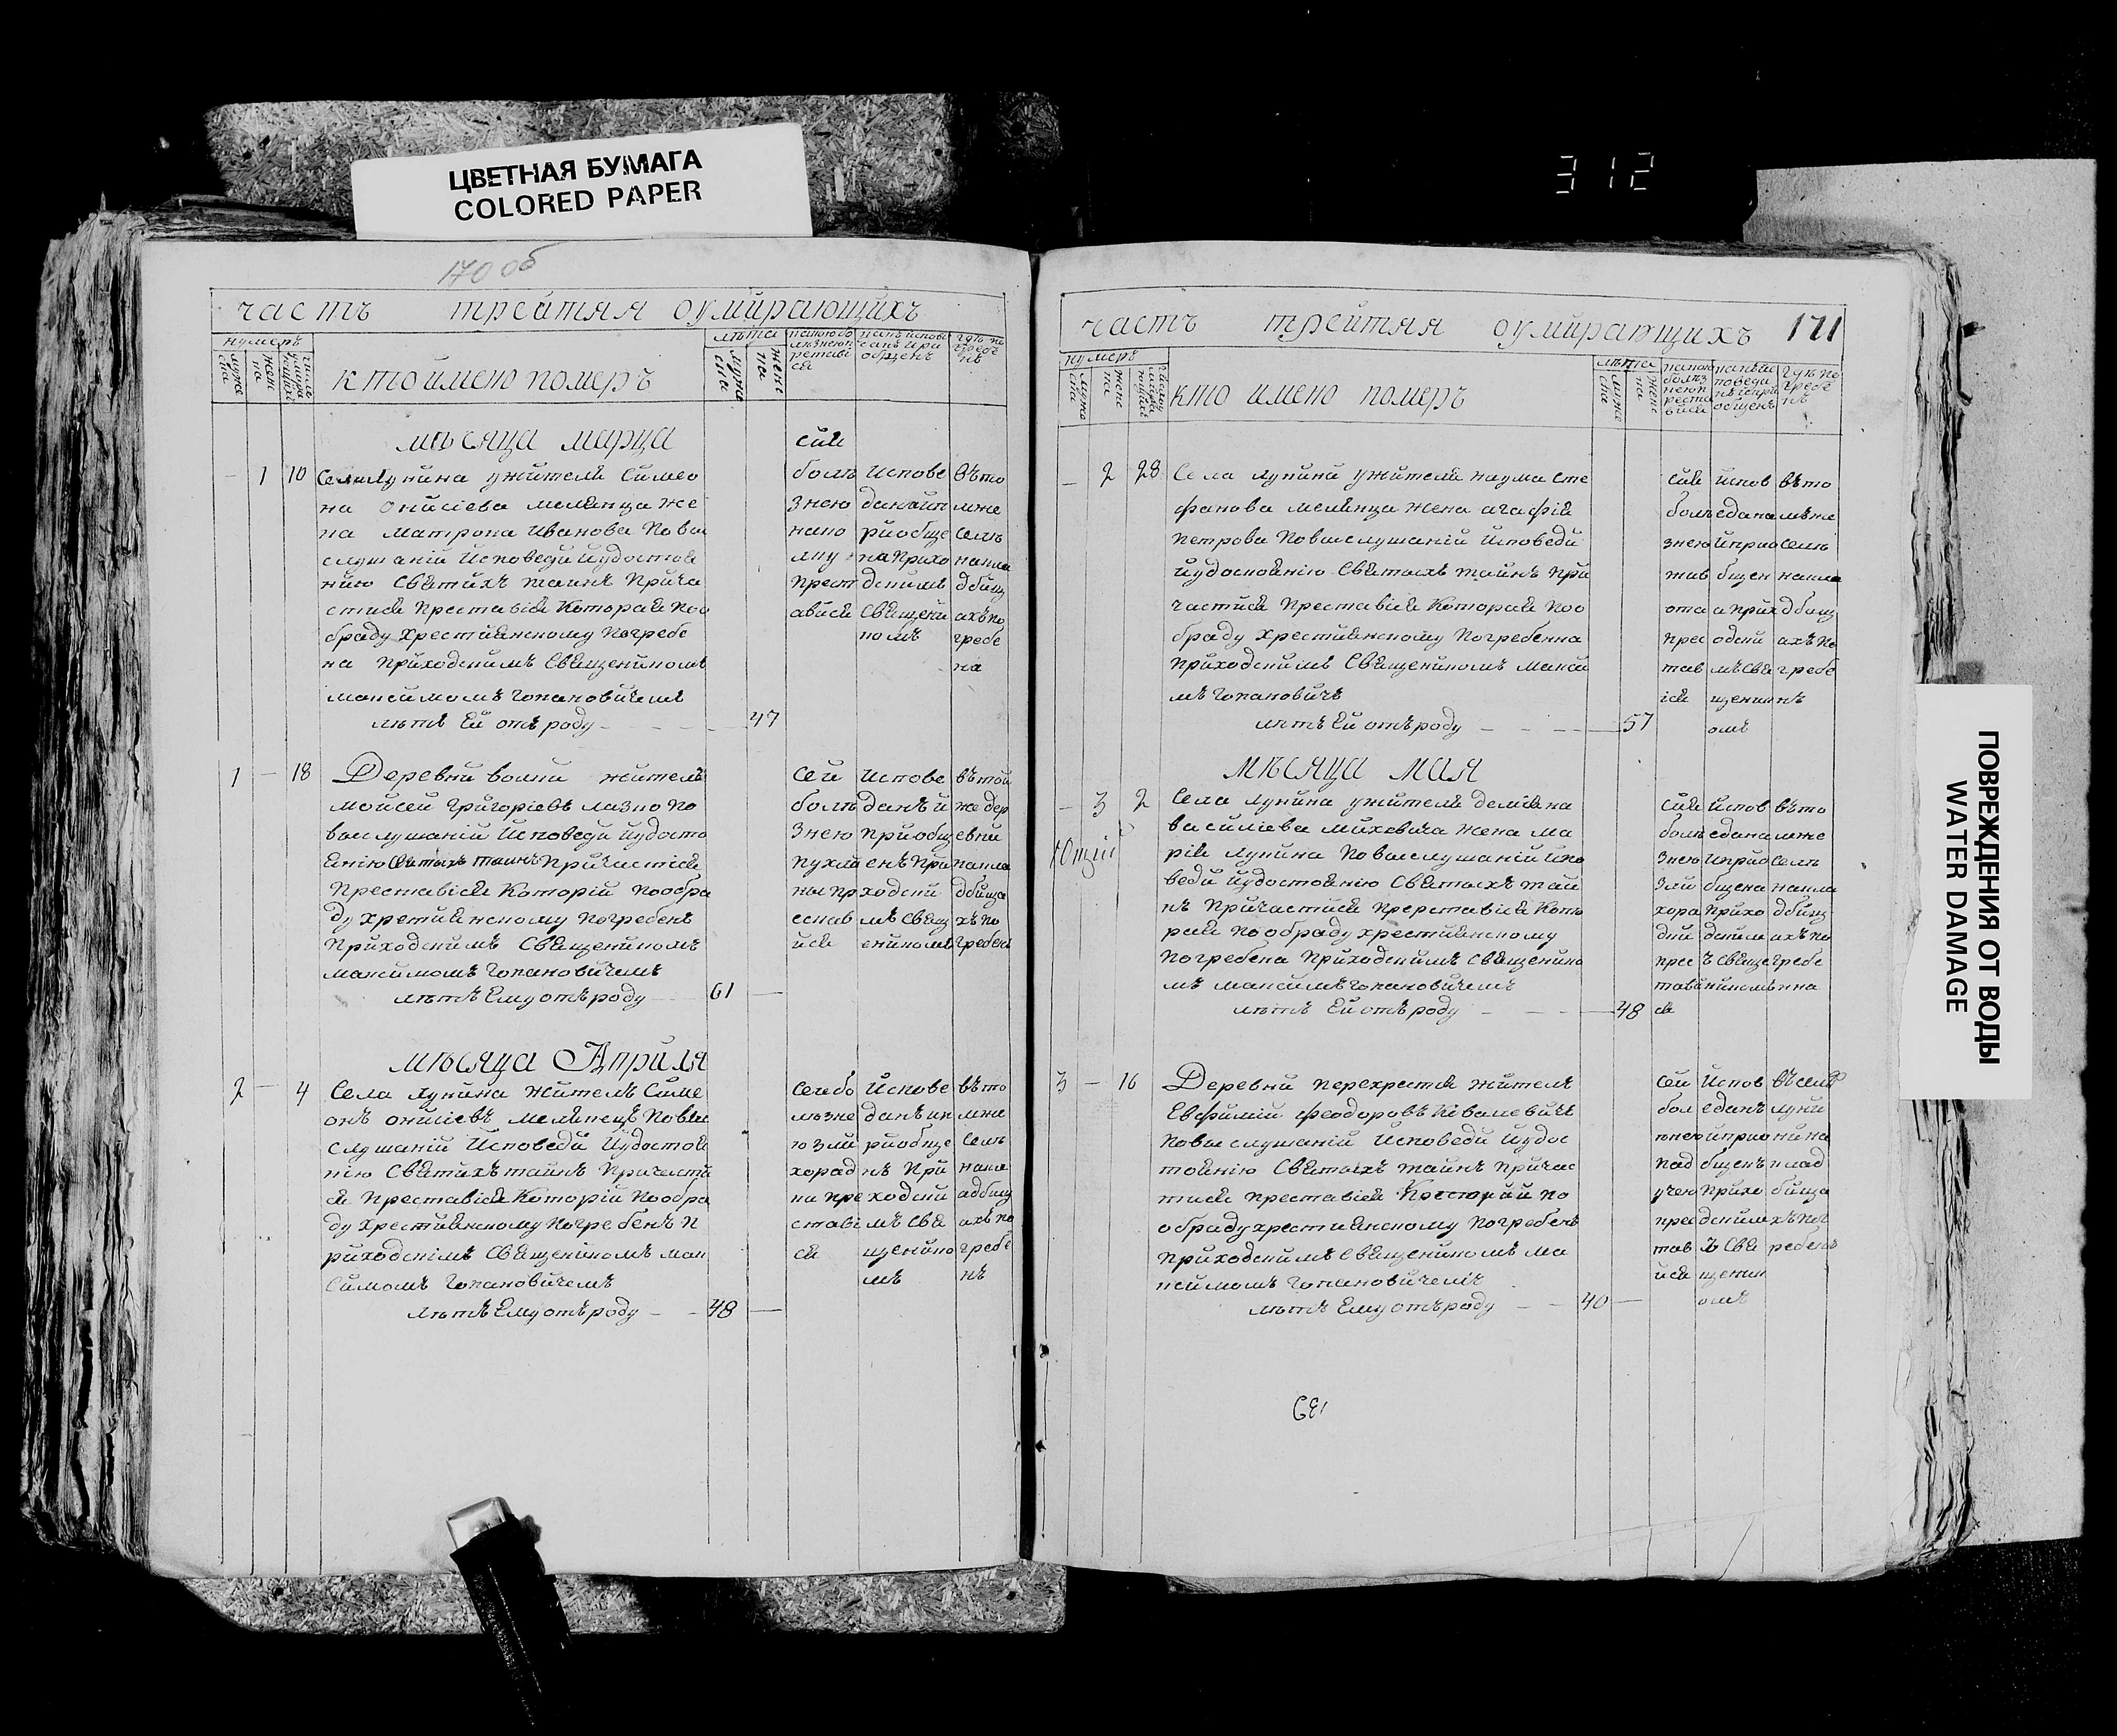 ЦВЕТНАЯ БУМАГА
COLORED PAPER
312
170 об
часть трейтяя оумйрающихъ
нумеръ
кто имено померъ
лѣта
мѣсяца марца
1 10 Села Лунина ужителя Симео
на Онйсіева мелянца же
на Матрона Иванова По вы
слушаній Исповеди Йудостоя
нию Святихъ таинъ Прича
стися Преставіся Которая Поо
браду хрестиянскому Погребе
на Приходскимъ Священикомъ
Максимомъ Гопановйчемъ
лѣтъ Ей отъ роду 47
сия
болѣ
знею
прест
ависся
Испове
дана ип
риобще
на Прихо
дскимъ
Священи
комъ
Въ то
мже
селѣ
накла
дбищ
ахъ по
гребе
на
1 18 Деревни волки житель
Мойсей Григоріевъ лазко По
выслушаній Исповеди Йудосто
янію Святыхъ таинъ Причастися
Преставіся Которій Пообра
ду хрестиянскому Погребенъ
Приходскимъ Священикомъ
Максимомъ Гопановйчемъ
лѣтъ Ему отъ роду 61
Сей
болѣ
знею
Испове
данъ й
приобщ
енъ При
ходски
мъ Свящ
еникомъ
въ той
же дер
евни
накла
дбища
хъ по
гребенъ
мѣсяца Априля
2 4 Села Лунина житель Симе
онъ Онйсіевъ мелянецъ По вы
слушаній Исповеди Йудостоя
нію Святихъ таинъ Причасти
ся Преставіся Которій Пообра
ду хрестиянскому Погребенъ П
риходскімъ Священикомъ Мак
симомъ Гопановйчемъ
лѣтъ Ему отъ роду 48
Сей бо
лѣзне
ю
хорад
ка пре
стави
ся
Испове
данъ ип
риобще
нъ При
ходски
мъ Свя
щенйко
мъ
въ то
мже
селѣ
накл
адбищ
ахъ по
гребе
нъ
часть трейтяя оумйрающихъ 171
нумеръ
кто имено померъ
лѣта
2 28 Села Лунина ужителя Наума Сте
фанова мелянца жена Агафія
Петрова По выслушаній Исповеди
Йудостоянію Святыхъ таинъ При
частися Преставіся Которая Поо
браду хрестиянскому Погребенна
Приходскимъ Священикомъ Макси
мъ Гопановйчъ
лѣтъ Ей отъ роду 57
сия
болѣ
знею
прес
тав
іся
Испов
едана
йприо
бщен
а прих
одски
мъ Свя
щеник
омъ
въ то
мъже
селѣ
накла
дбищ
ахъ по
гребе
нъ
мѣсяца мая
3 2 Села Лунина ужителя Деміяна
Василіева Михевйча жена Ма
рія Лукина По выслушаній Испо
веди Йудостоянію Святыхъ таи
нъ Причастися Преставіся Кото
рая Пообраду хрестиянскому
Погребена Приходскимъ Священико
мъ Максимъ Гопановйчемъ
лѣтъ Ей отъ роду 48
сия
болѣ
знею
хора
прес
тави
ся
Испов
едана
иприо
бщена
прихо
дским
ъ Свяще
никомъ
въ то
мже
селѣ
накла
дбищ
ахъ по
гребе
нна
3 16 Деревни Перехрестя житель
Евфимій Феодоровъ Ковалевйчъ
По выслушаній Исповеди Йудос
тоянію Святыхъ таинъ Причас
тися Преставіся Которий По
обраду хрестиянскому Погребенъ
Приходскимъ Священикомъ Ма
ксимомъ Гопановйчемъ
лѣтъ Ему отъ роду 40
Сей
бол
ѣнею
пад
учею
прес
тав
йся
Испов
еданъ
йприо
бщенъ
прихо
дским
ъ Свя
щеник
омъ
въ селѣ
Луни
ни на
клад
бища
хъ пог
ребенъ
ПОВРЕЖДЕНИЯ ОТ ВОДЫ
WATER DAMAGE